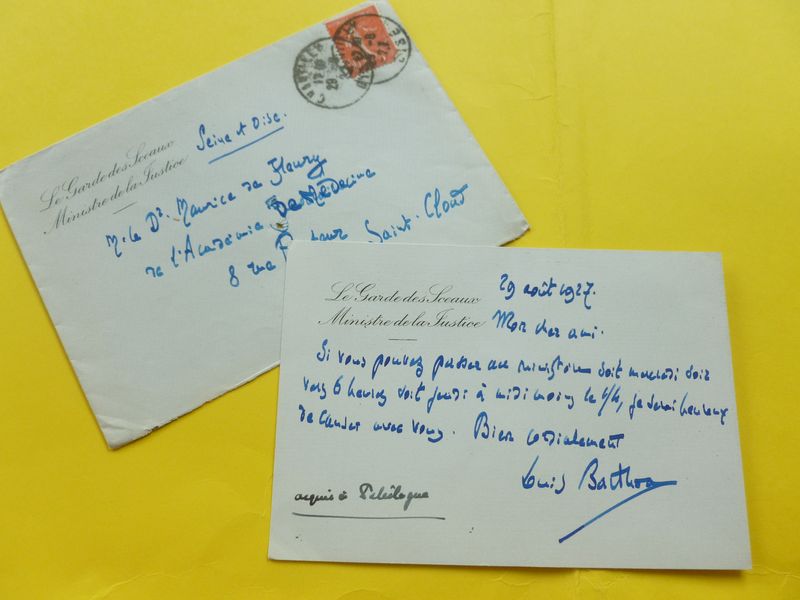 Le Garde des Sceaux
Ministre de la Justice
Seine et Oise.
M. le Dr. Maurice de Fleury
de l'Académie de Médecine
8 rue Saint-Cloud
Le Garde des Sceaux
Ministre de la Justice
29 août 1927.
Mon cher ami.
Si vous pouvez passer au ministère soit mercredi soir
vers 6 heures soit jeudi à midi moins le 1/4, je serai heureux
de causer avec vous. Bien cordialement
Louis Barthou
acquis à